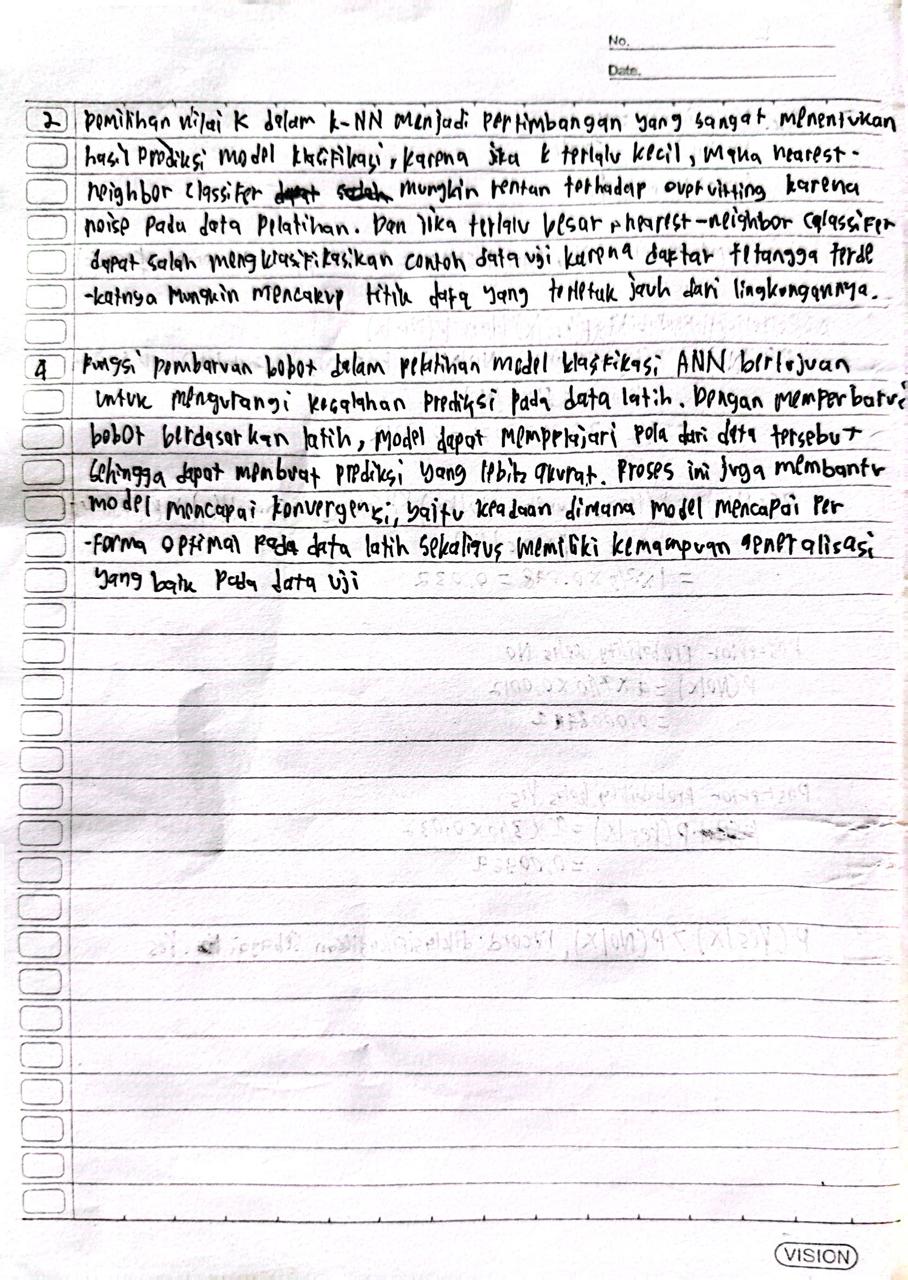 No.
Date.
2 pemilihan nilai k dalam k-NN menjadi pertimbangan yang sangat menentukan
hasil prediksi model klasifikasi, karena jika k terlalu kecil, maka nearest-
neighbor classifer mungkin rentan terhadap overvitting karena
noise pada data pelatihan. Dan jika terlalu besar, nearest-neighbor calassifer
dapat salah mengklasifikasikan contoh data uji karena daftar tetangga terde
-katnya mungkin mencakup titik data yang terletak jauh dari lingkungannya.
4 Fungsi pembaruan bobot dalam pelatihan model klasifikasi ANN bertujuan
untuk mengurangi kesalahan prediksi pada data latih. Dengan memperbarui
bobot berdasarkan latih, model dapat mempelajari pola dari data tersebut
sehingga dapat membuat prediksi yang lebih akurat. Proses ini juga membantu
model mencapai konvergensi, yaitu keadaan dimana model mencapai per
-forma optimal pada data latih sekaligus memiliki kemampuan generalisasi
yang baik pada data uji
VISION